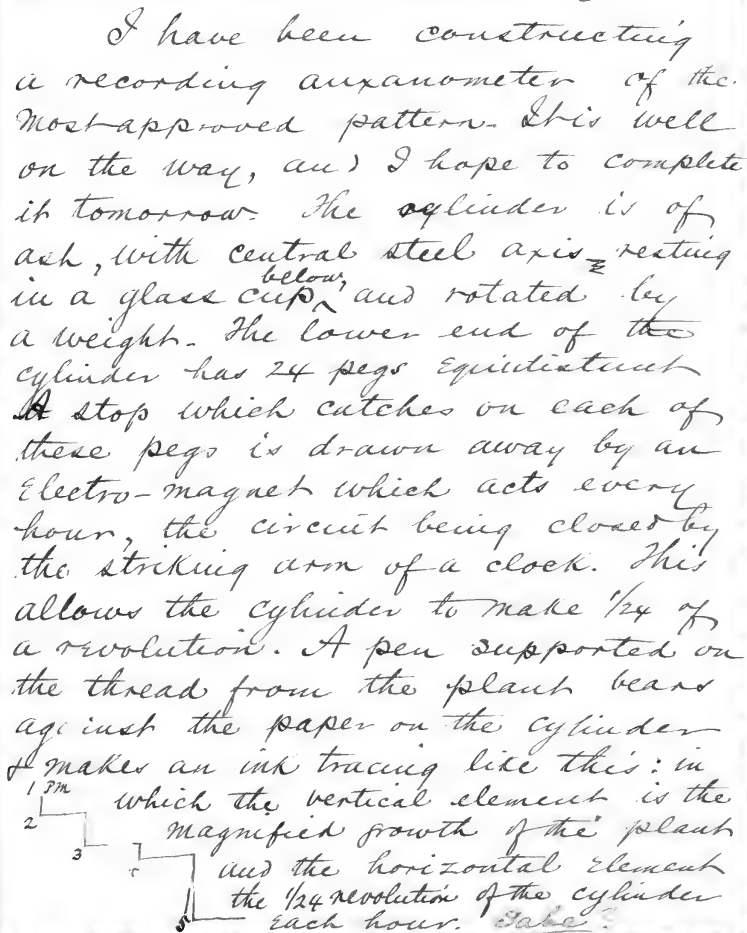 I have been constructing
a recording auxanometer of the
most approved pattern. It is well
on the way, and I hope to complete
it tomorrow. The cylinder is of
ash, with central steel axis resting
below,
in a glass cup, and rotated by
a weight. The lower end of the
cylinder has 24 pegs equidistant
A stop which catches on each of
these pegs is drawn away by an
Electro-magnet which acts every
hour, the circuit being closed by
the striking arm of a clock. This
allows the cylinder to make 1/24 of
a revolution. A pen supported on
the thread from the plant bears
against the paper on the cylinder
& makes an ink tracing like this: in
1 PM
which the vertical element is the
2
magnified growth of the plant
3
and the horizontal element
the 1/24 revolution of the cylinder
5
Each hour.